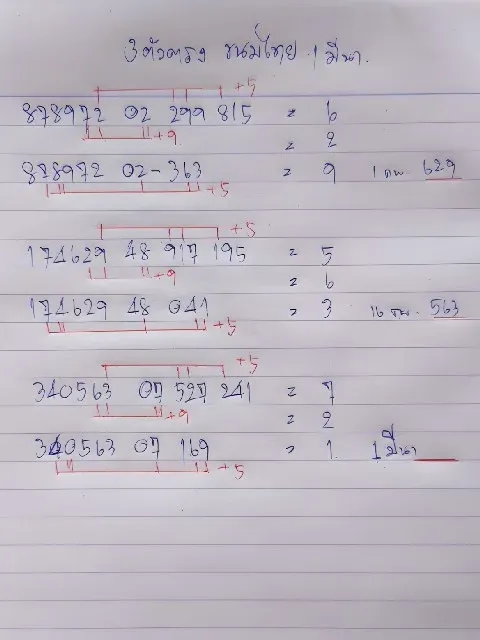 3 ตัวตรง ขนมไทย 1 มีนา.
+5
878972 02 299 815 = 6
+9 = 2
828972 02-363 = 9 1 กพ 629
+5
+5
174629 48 917 195 = 5
+9 = 6
174629 48 041 = 3 16 กพ. 563
+5
+5
340563 07 527 241 = 7
+9 = 2
340563 07 169 = 1 1 มีนา
+5